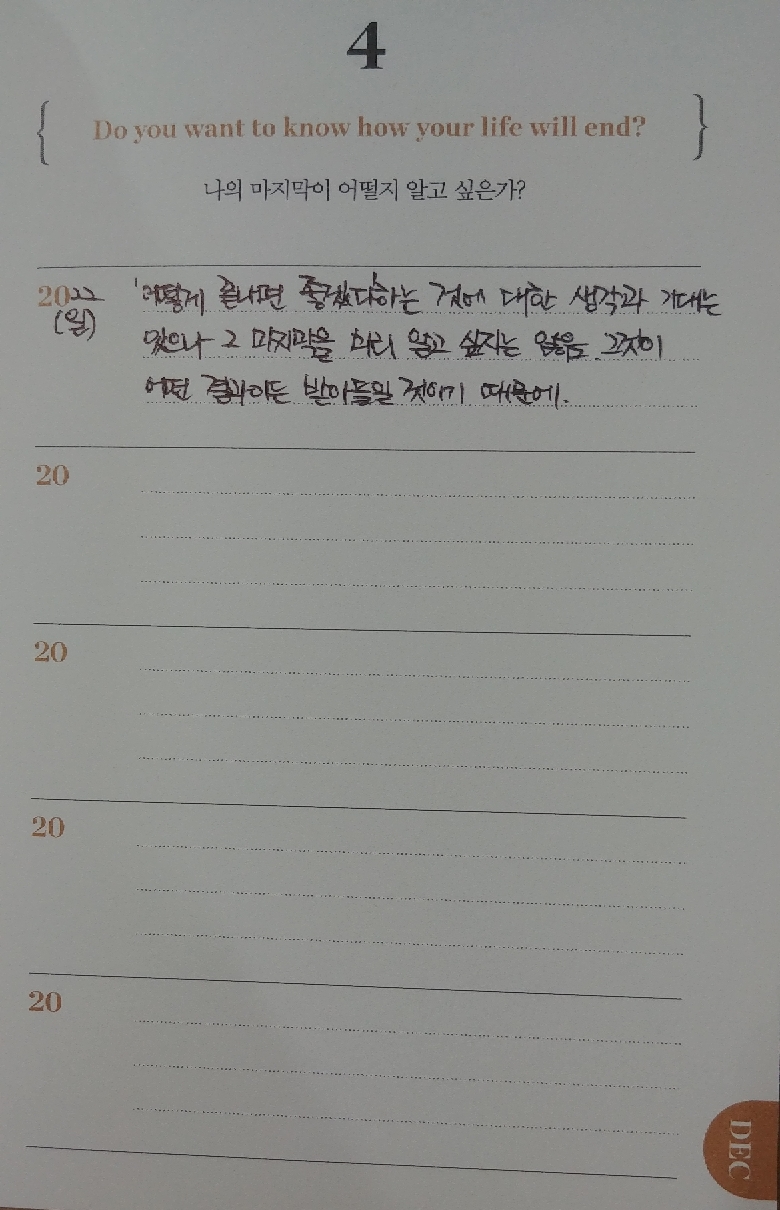 4
Do you want to know how your life will end?
나의 마지막이 어떨지 알고 싶은가?
2022 '어떻게 끝나면 좋겠다'하는 것에 대한 생각과 기대는
(일) 있으나 그 마지막을 미리 알고 싶지는 않음. 그것이
어떤 결과이든 받아들일 것이기 때문에.
20
20
20
20
DEC